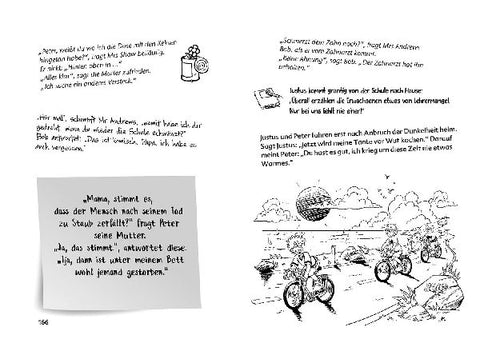 „Peter, weißt du wo ich die Dose mit den Keksen
hingetan habe?", fragt Mrs Shaw beiläufig.
Er nickt. „Hinten oben in ..."
„Alles klar", sagt die Mutter zufrieden.
„Ich suche ein anderes Versteck."
„Hör mal", schimpft Mr Andrews, „
du wieder die Schule schwänzt?"
Bob antwortet: „Das ist komisch, Papa, ich habe es
auch vergessen."
„Mama, stimmt es,
dass der Mensch nach seinem Tod
zu Staub zerfällt?" fragt Peter
seine Mutter.
„Ja, das stimmt", antwortet diese.
„Tja, dann ist unter meinem Bett
wohl jemand gestorben."
166
„Schmerzt dein Zahn noch?", fragt Mrs Andrews
Bob, als er vom Zahnarzt kommt.
„Keine Ahnung", sagt Bob. „Der Zahnarzt hat ihn
behalten."
Justus kommt grantig von der Schule nach Hause:
„Überall erzählen die Erwachsenen etwas von Lehrermangel.
Nur bei uns fehlt nie einer!"
Justus und Peter fuhren erst nach Anbruch der Dunkelheit heim.
Sagt Justus: „Jetzt wird meine Tante vor Wut kochen." Darauf
meint Peter: „Du hast es gut, ich krieg um diese Zeit nie etwas
Warmes."